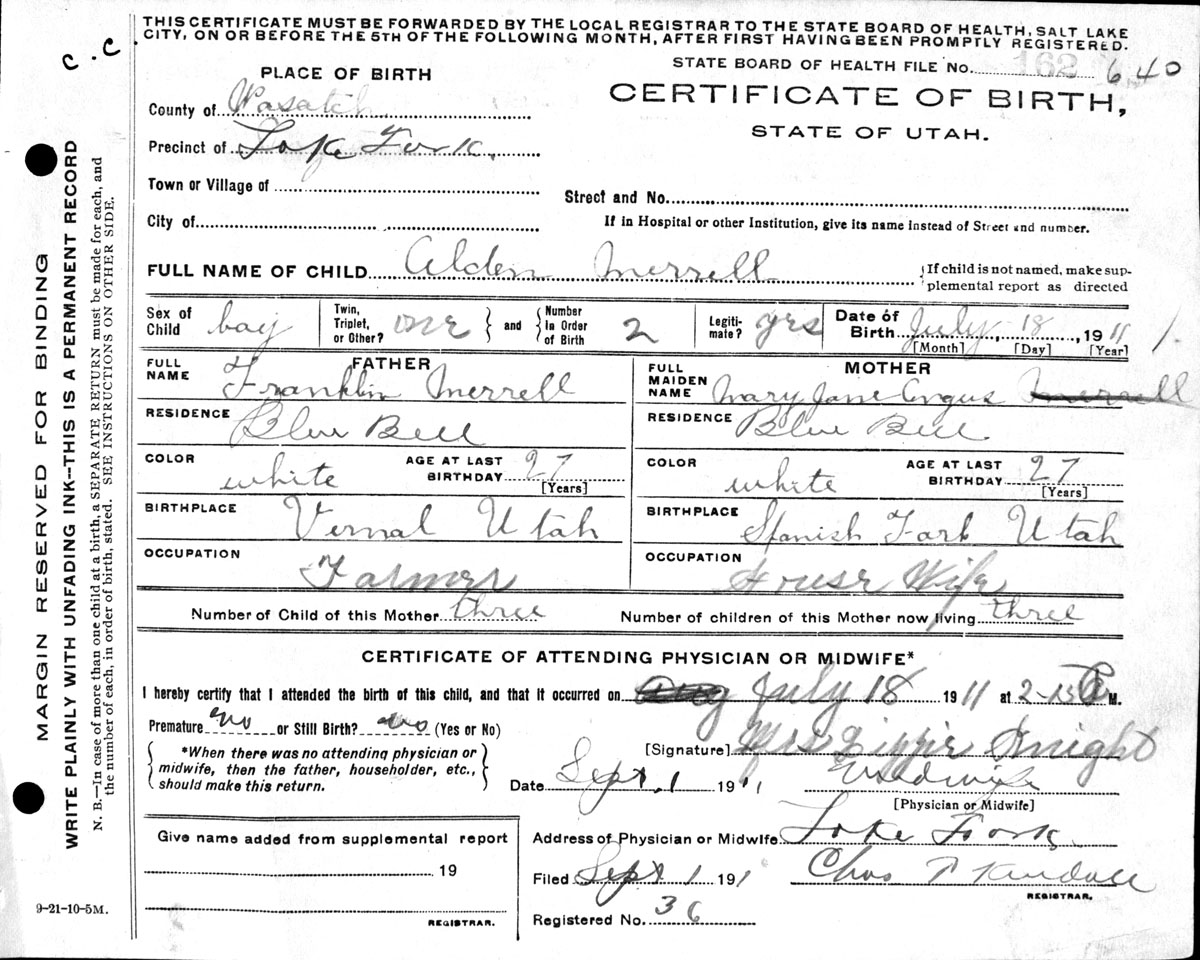 THIS CERTIFICATE MUST BE FORWARDED BY THE LOCAL REGISTRAR TO THE STATE BOARD OF HEALTH, SALT LAKE
CITY, ON OR BEFORE THE 5TH OF THE FOLLOWING MONTH, AFTER FIRST HAVING BEEN PROMPTLY REGISTERED.
c . c
STATE BOARD OF HEALTH FILE No. 162 640
PLACE OF BIRTH
CERTIFICATE OF BIRTH,
STATE OF UTAH.
County of Wasatch
Precinct of Lake Fork.
Town or Village of
Street and No.
City of
If in Hospital or other Institution, give its name instead of Street and number.
FULL NAME OF CHILD Alden Merrell
{If child is not named, make sup-
plemental report as directed
Sex of Child boy
Twin, Triplet, or Other? one } and {
Number In Order of Birth 2
Legiti-mate? yes
Date of Birth July 18, 1911
[Month] [Day] [Year]
FATHER
FULL NAME Franklin Merrell
RESIDENCE Blue Bell
COLOR white
AGE AT LAST BIRTHDAY 27
[Years]
BIRTHPLACE Vernal Utah
OCCUPATION Farmer
MOTHER
FULL MAIDEN NAME Mary Jane Angus Merrell
RESIDENCE Blue Bell
COLOR white
AGE AT LAST BIRTHDAY 27
[Years]
BIRTHPLACE Spanish Fork Utah
OCCUPATION House Wife
Number of Child of this Mother three
Number of children of this Mother now living three
CERTIFICATE OF ATTENDING PHYSICIAN OR MIDWIFE*
I hereby certify that I attended the birth of this child, and that it occurred on Aug July 18 1911 at 2-15 P M.
Premature no or Still Birth? no (Yes or No)
{ *When there was no attending physician or
midwife, then the father, householder, etc.,
should make this return. }
[Signature] Mrs Lizzie Knight
Date Sept. 1 1911 Midwife
[Physician or Midwife]
Give name added from supplemental report
19
REGISTRAR.
Address of Physician or Midwife Lake Fork.
Filed Sept 1 1911 Chas
REGISTRAR.
Registered No. 36
9-21-10-5M.
MARGIN RESERVED FOR BINDING
WRITE PLAINLY WITH UNFADING INK--THIS IS A PERMANENT RECORD
N. B.—In case of more than one child at a birth, a SEPARATE RETURN must be made for each, and
the number of each, in order of birth, stated. SEE INSTRUCTIONS ON OTHER SIDE.